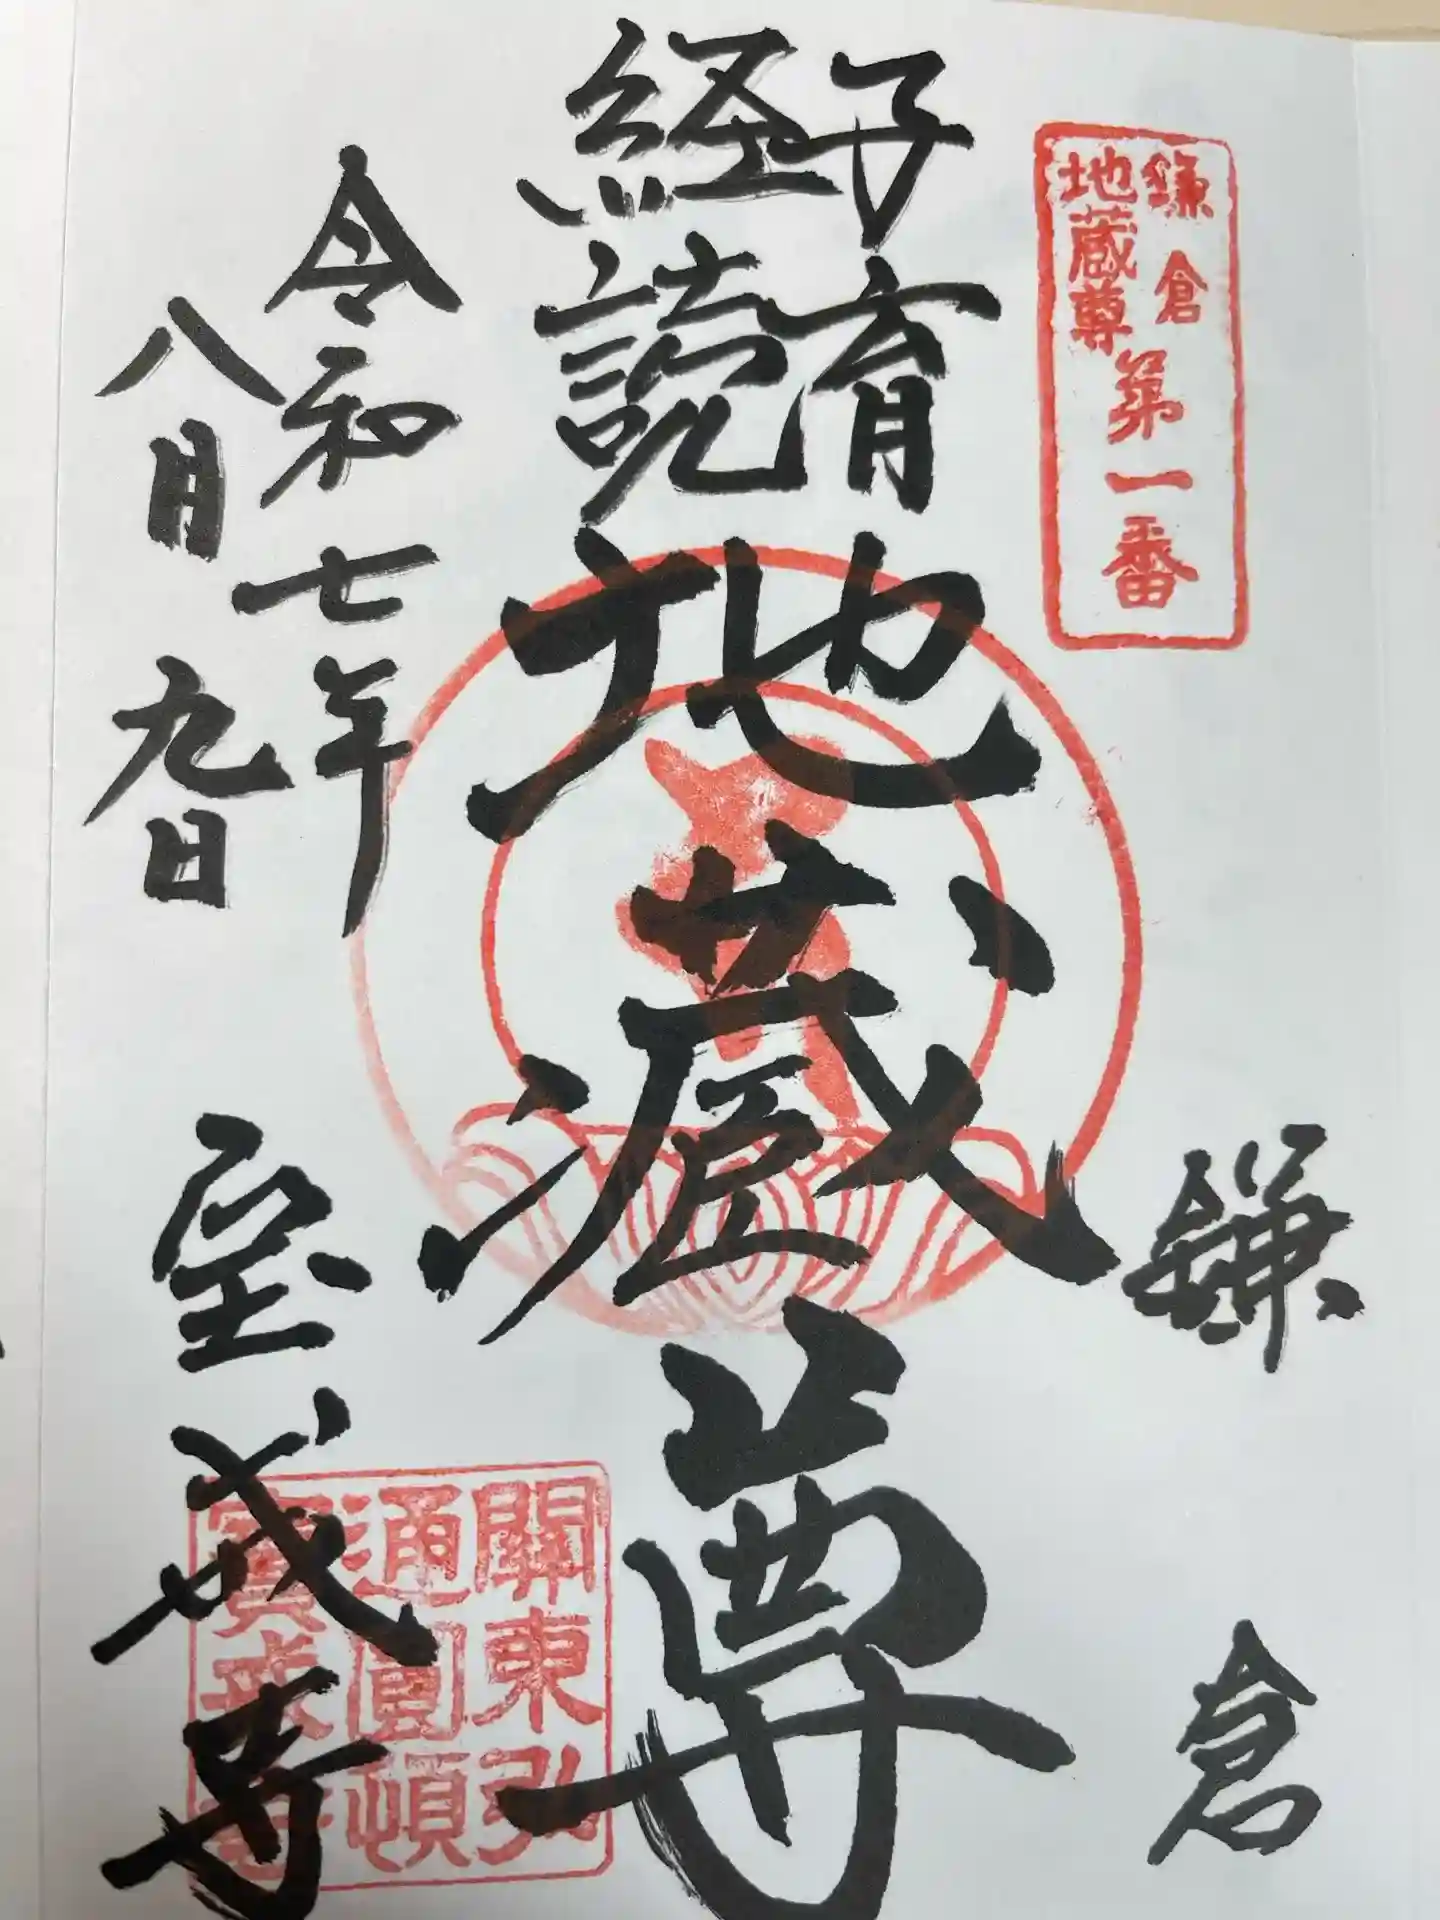 鎌倉
地蔵尊
第一番
鎌倉
子育
経読
地蔵尊
令和七年
八月九日
宝戒寺
關東弘
通圓頓
寶戒寺